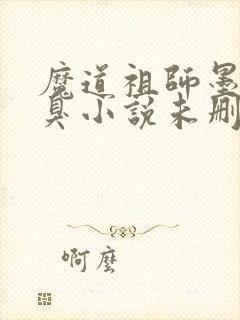 魔道祖師墨
臭小説未刪
啊麼